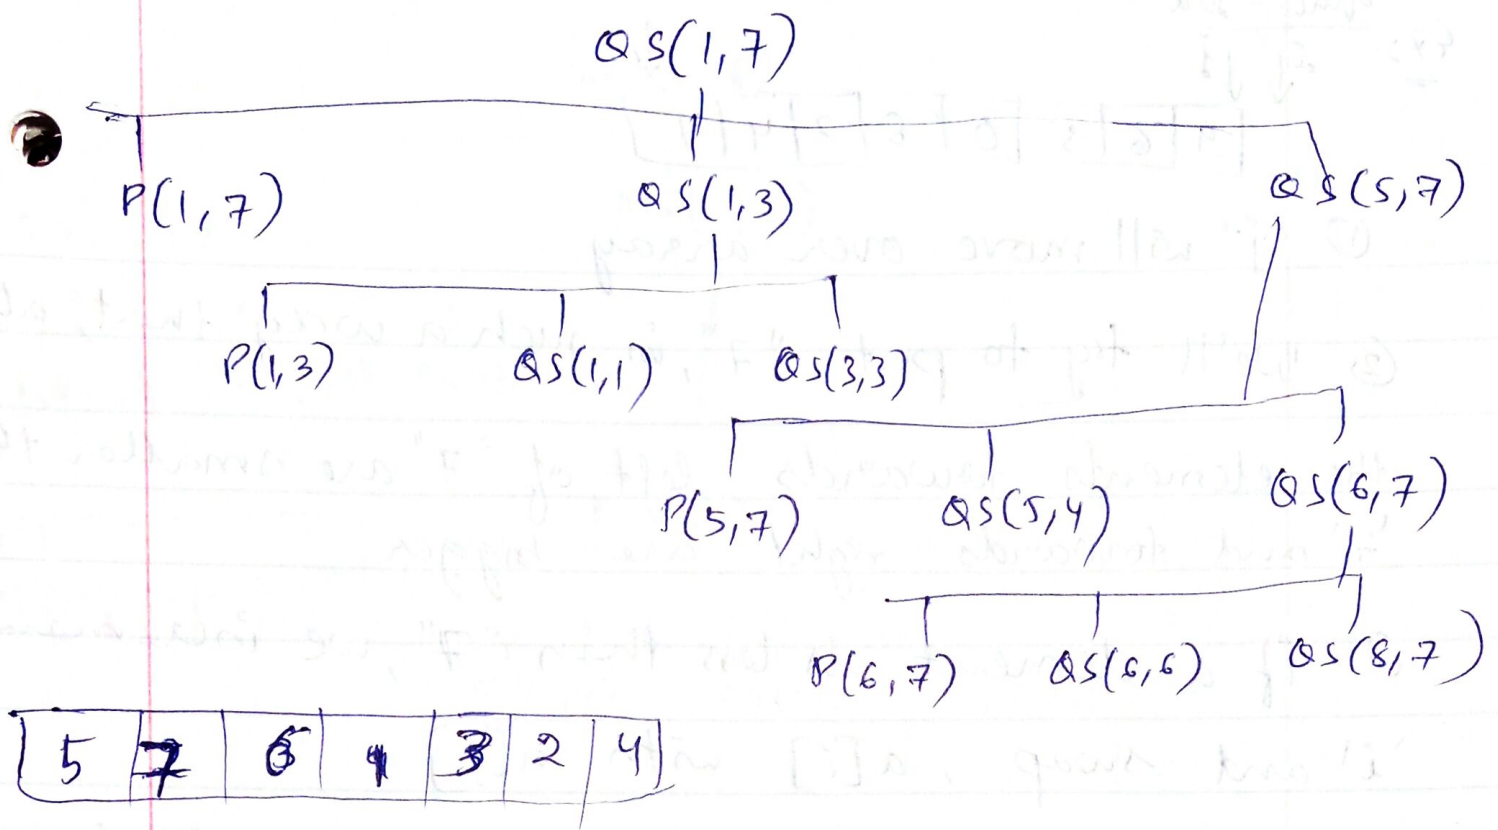 QS(1,7)
P(1,7) QS(1,3) QS(5,7)
P(1,3) QS(1,1) QS(3,3)
P(5,7) QS(5,4) QS(6,7)
P(6,7) QS(6,6) QS(8,7)
5 7 6 1 3 2 4